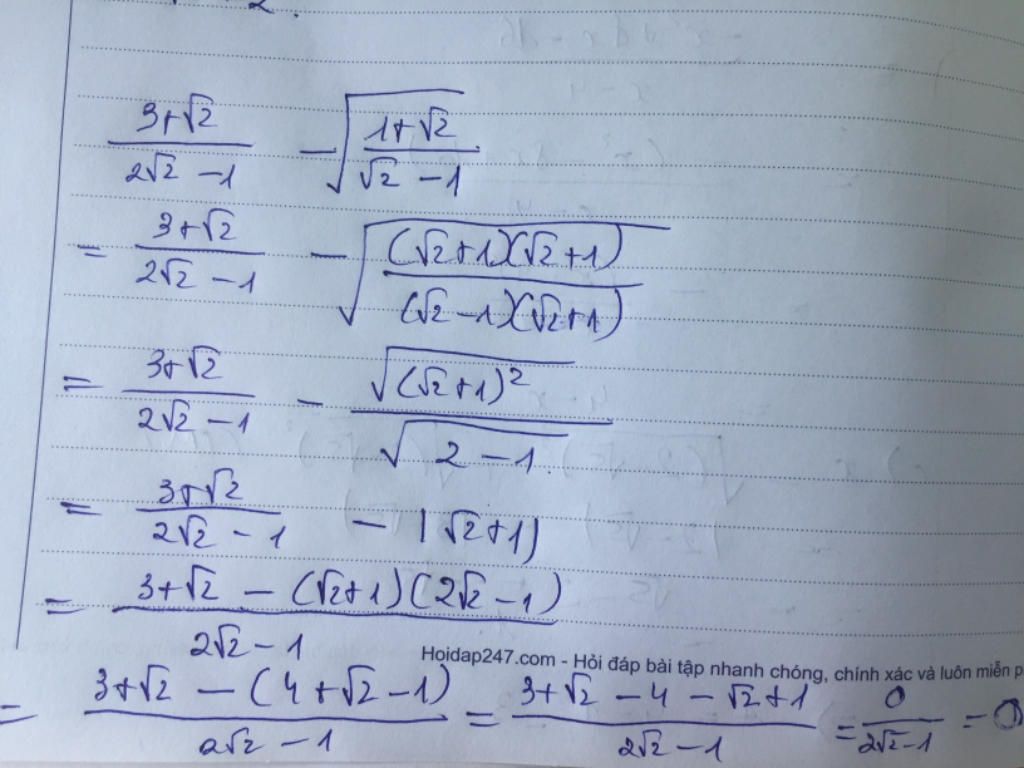 2.
(3+√2)/(2√2 -1) - √((1+√2)/(√2 -1))
= (3+√2)/(2√2 -1) - √(((√2+1)(√2+1))/((√2-1)(√2+1)))
= (3+√2)/(2√2 -1) - √((√2+1)²)/√(2-1)
= (3+√2)/(2√2 -1) - |√2+1|
= (3+√2 - (√2+1)(2√2 -1))/(2√2 -1)
Hoidap247.com - Hỏi đáp bài tập nhanh chóng, chính xác và luôn miễn p
= (3+√2 - (4+√2-1))/(2√2 -1) = (3+√2 -4 -√2+1)/(2√2 -1) = 0/(2√2-1) = 0